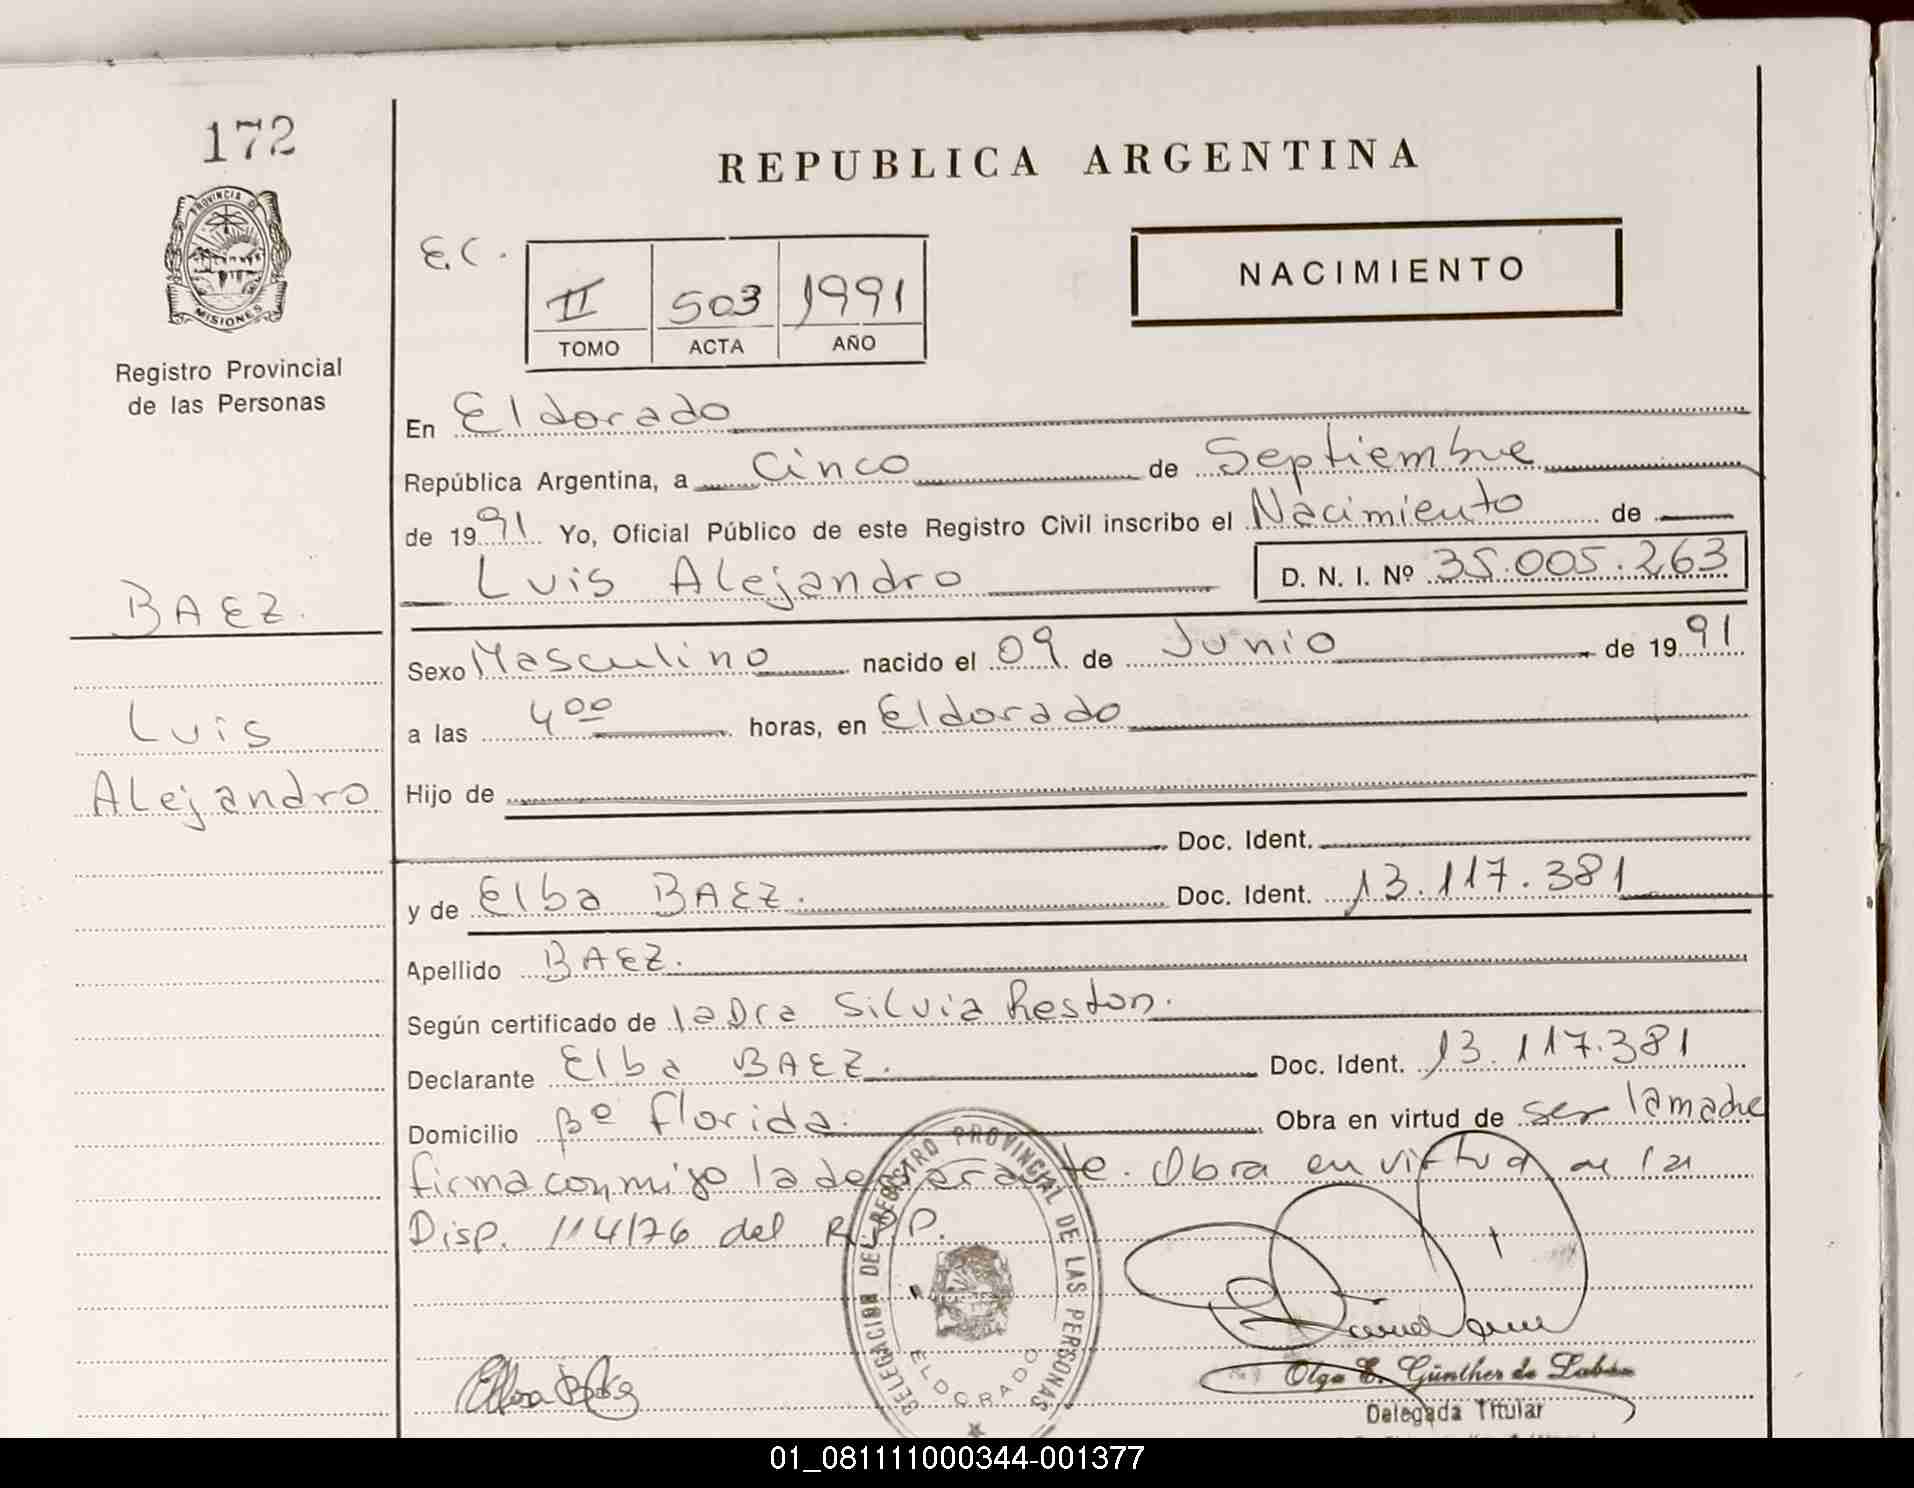 172
PROVINCIA DE
MISIONES
Registro Provincial
de las Personas
BAEZ.
Luis
Alejandro
REPUBLICA ARGENTINA
E.C.
NACIMIENTO
II 503 1991
TOMO ACTA AÑO
En Eldorado
República Argentina, a Cinco de Septiembre
de 1991 Yo, Oficial Público de este Registro Civil inscribo el Nacimiento de
Luis Alejandro D. N. I. Nº 35.005.263
Sexo Masculino nacido el 09 de Junio de 1991
a las 4 00 horas, en Eldorado
Hijo de
Doc. Ident.
y de Elba BAEZ. Doc. Ident. 13.117.381
Apellido BAEZ.
Según certificado de la Dra Silvia Reston.
Declarante Elba BAEZ. Doc. Ident. 13.117.381
Domicilio Bº Florida. Obra en virtud de ser la madre
firma conmigo la declarante. Obra en virtud de la
Disp. 114/76 del R.P.P.
DELEGACION DEL REGISTRO PROVINCIAL DE LAS PERSONAS
ELDORADO
Olga E. Günther de Labán
Delegada Titular
01_081111000344-001377